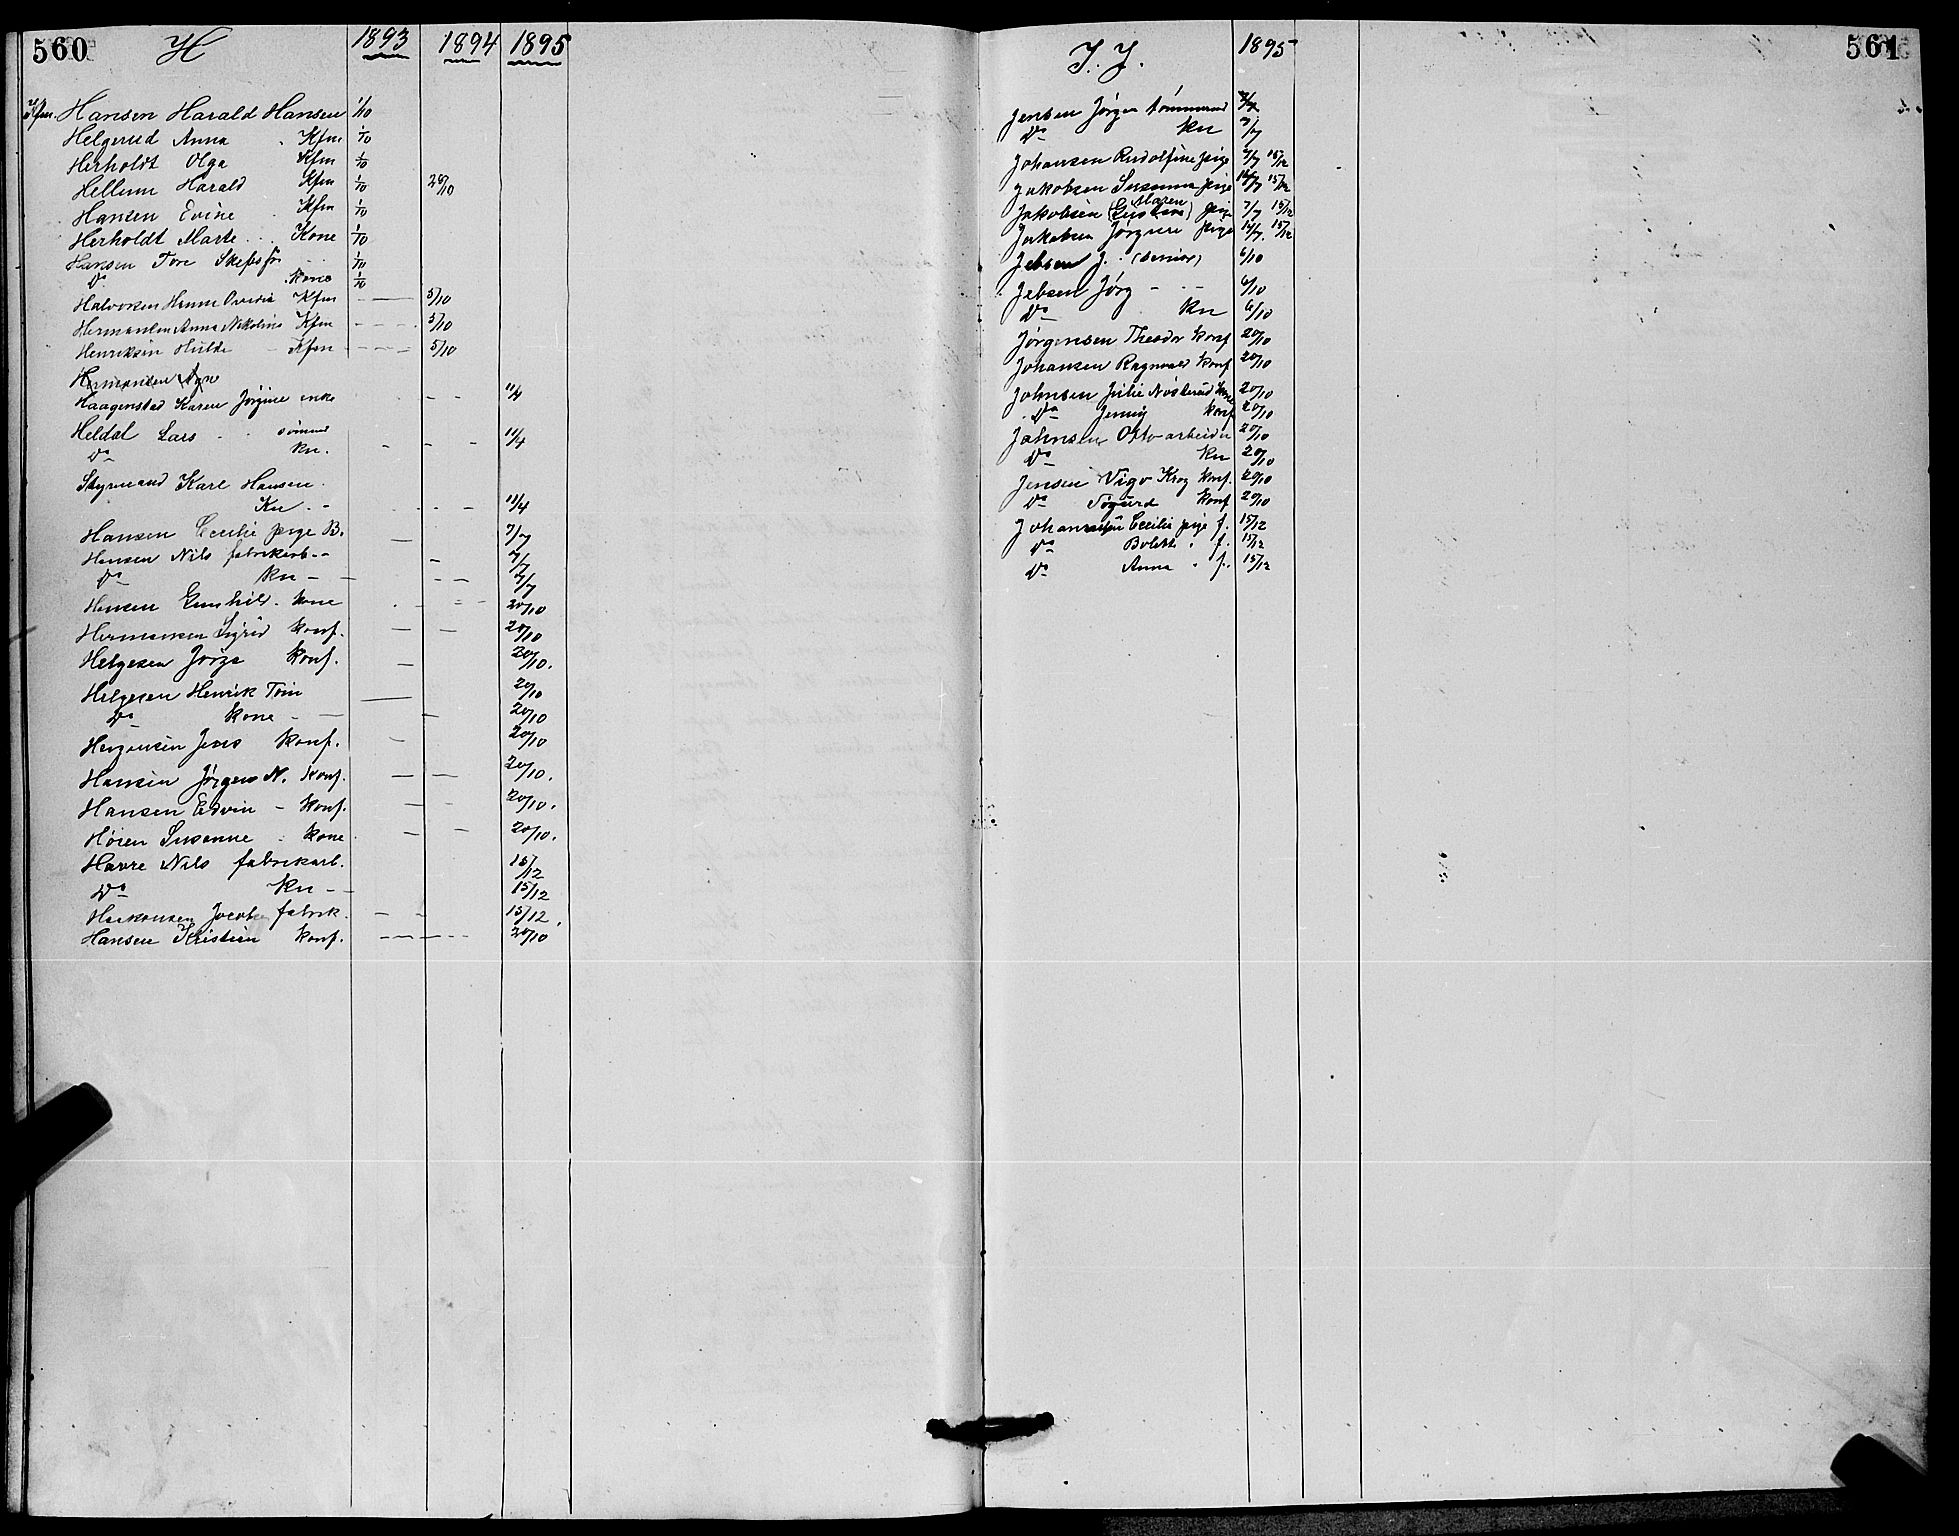 560 H 1893 1894 1895
Kfm. Hansen Harald Hansen 1/10
Helgerud Anna Kfm 1/10
Herholdt Olga Kfm 1/10
Hellum Harald Kfm 1/10 20/10
Hansen Evine Kfm 1/10
Herholdt Marte Kone 1/10
Hansen Tore Skibsfr 1/10
Do kone 1/10
Halvorsen Hanna Ovedia Kfm 5/10
Hermansen Anna Nikoline Kfm 5/10
Henriksen Hulda Kfm 5/10
Hermansen
Haagenstad Karen Jørgine enke 11/4
Heldal Lars sømnd 11/4
Do kn.
Styrmand Karl Hansen
Kn 11/4
Hansen Cecilie pige B. 7/7
Hansen Nils fabrikarb 7/7
Do kn 7/7
Hansen Gunhild kone 20/10
Hermansen Sigrid konf. 20/10
Helgesen Jørgs konf. 20/10.
Helgesen Henrik Tom 20/10
Do kone 20/10
Jens konf. 20/10
Hansen Jørgen N. konf. 20/10.
Hansen Edvin konf. 20/10.
Høien Susanne kone 20/10.
Havre Nils fabrikarb. 15/12
Do kn 15/12
Haakonsen Jacob fabrik. 15/12
Hansen Kristian konf. 20/10
I. J. 1895 561
Jensen Jørgen tømmermd 7/7
Do kn 7/7
Johansen Rudolfine pige 7/7 15/12
Jakobsen Susanna pige 14/7 15/12
Maren
Jakobsen (Gustava) pige 7/7 15/12
Jakobsen Jørgine pige 14/7. 15/12
Jebsen J. (senior) 6/10
Jebsen Jørg 6/10
Do kn 6/10
Jørgensen Theodor konf 20/10
Johansen Ragnvald konf 20/10
Johnsen Julie Nøsterud kone 20/10
Do Jenny konf 20/10
Johnsen Otto arbeider 20/10
Do kn 20/10
Jensen Vigo Krog konf. 20/10
Do Sigurd konf 20/10
Johannessen Cecilie pige f. 15/12
Do Bolette f. 15/12
Do Anna f. 15/12